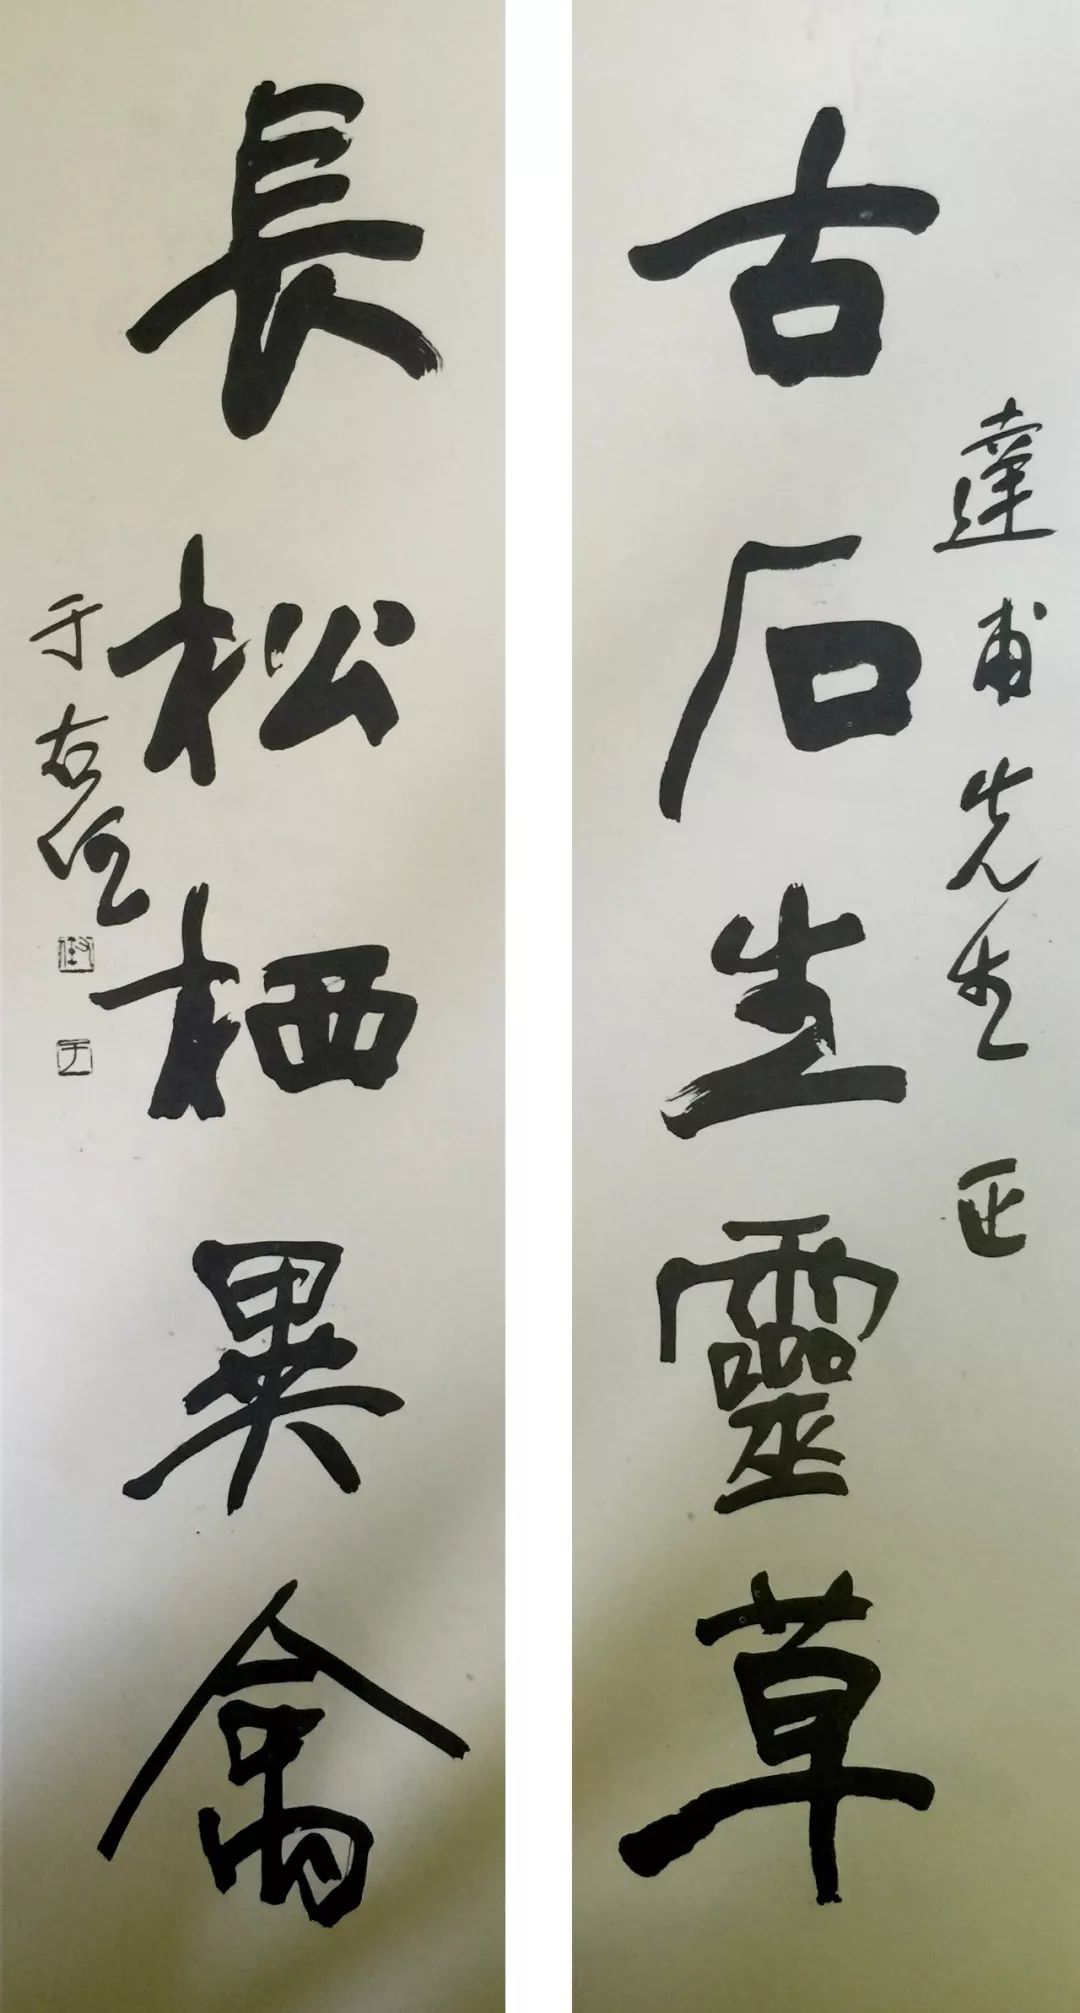 古石生靈草
達甫先生 正
長松栖異禽
于右任